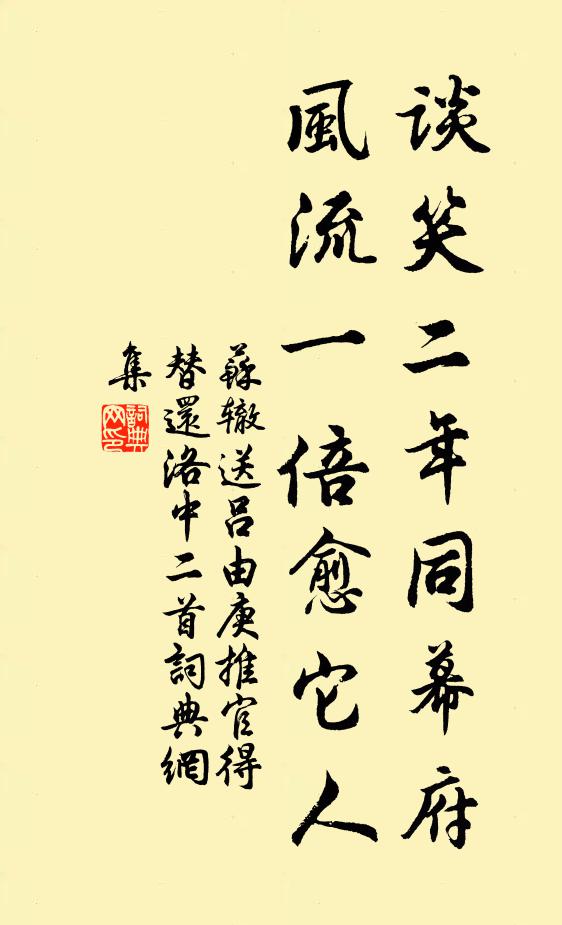 談笑二年同幕府
風流一倍愈它人
蘇辙送吕由庚推官得
替還洛中二首詞典網
集
詞典
网印